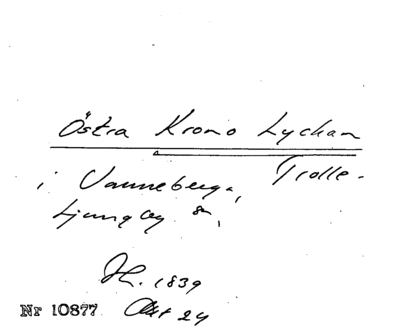 Östra Krono Lyckan
i Vanneberga, Trolle-
Ljungby sn,
H. 1839
Nr 10877 Akt 24